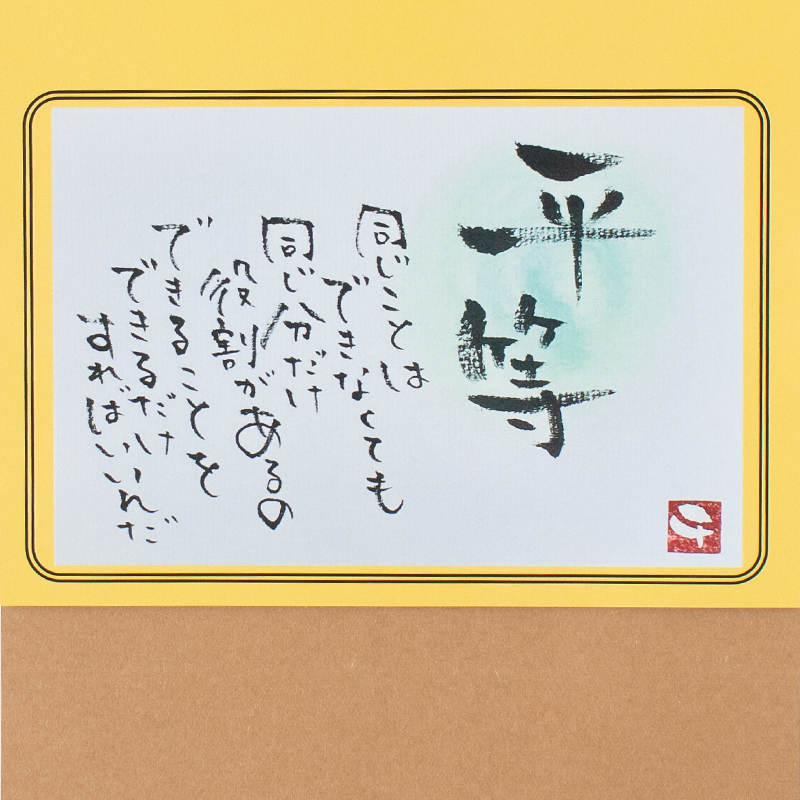 平等
同じことは
できなくても
同じ分だけ
役割があるの
できることを
できるだけ
すればいいんだ